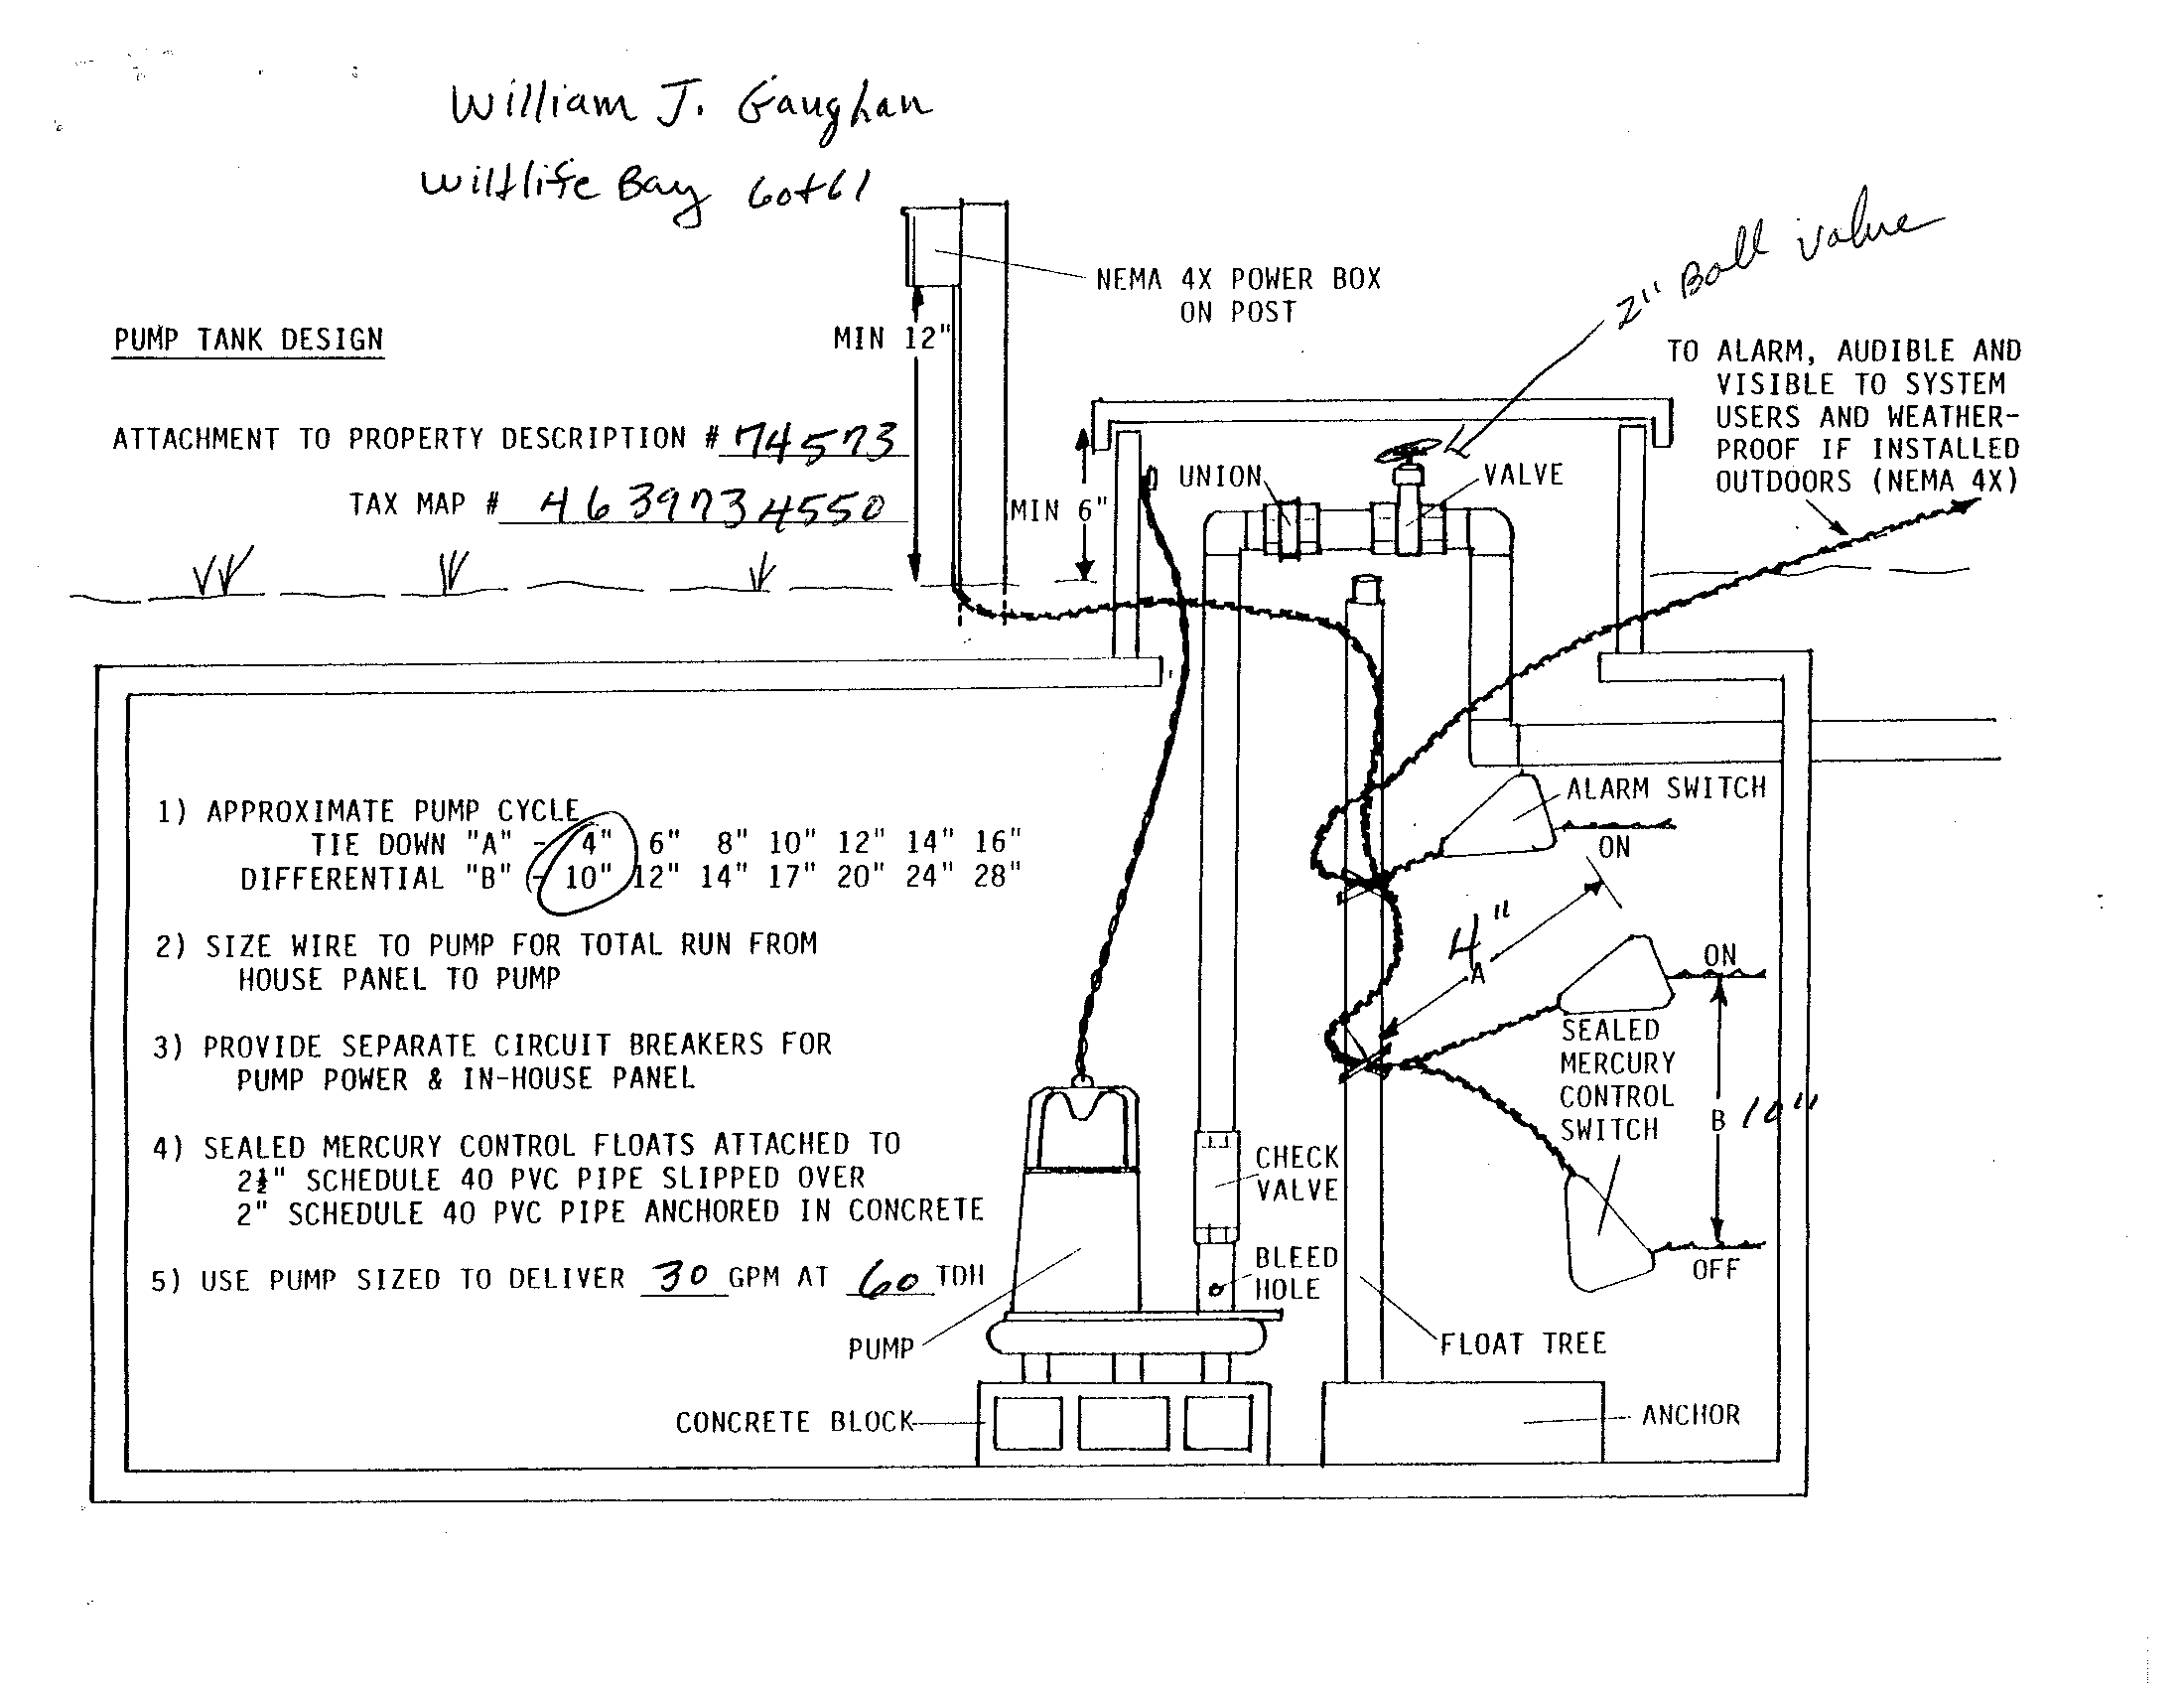 William J. Gaughan
Wildlife Bay Lot 61
2" Ball valve
NEMA 4X POWER BOX
ON POST
MIN 12"
PUMP TANK DESIGN
TO ALARM, AUDIBLE AND
VISIBLE TO SYSTEM
USERS AND WEATHER-
PROOF IF INSTALLED
OUTDOORS (NEMA 4X)
ATTACHMENT TO PROPERTY DESCRIPTION # 74573
TAX MAP # 4639734550
MIN 6"
UNION
VALVE
1) APPROXIMATE PUMP CYCLE
TIE DOWN "A" - 4" 6" 8" 10" 12" 14" 16"
DIFFERENTIAL "B" - 10" 12" 14" 17" 20" 24" 28"
2) SIZE WIRE TO PUMP FOR TOTAL RUN FROM
HOUSE PANEL TO PUMP
3) PROVIDE SEPARATE CIRCUIT BREAKERS FOR
PUMP POWER & IN-HOUSE PANEL
4) SEALED MERCURY CONTROL FLOATS ATTACHED TO
2½" SCHEDULE 40 PVC PIPE SLIPPED OVER
2" SCHEDULE 40 PVC PIPE ANCHORED IN CONCRETE
5) USE PUMP SIZED TO DELIVER 30 GPM AT 60 TDH
ALARM SWITCH
ON
4"
A
ON
SEALED
MERCURY
CONTROL
SWITCH
B 10"
OFF
CHECK
VALVE
BLEED
HOLE
PUMP
FLOAT TREE
CONCRETE BLOCK
ANCHOR